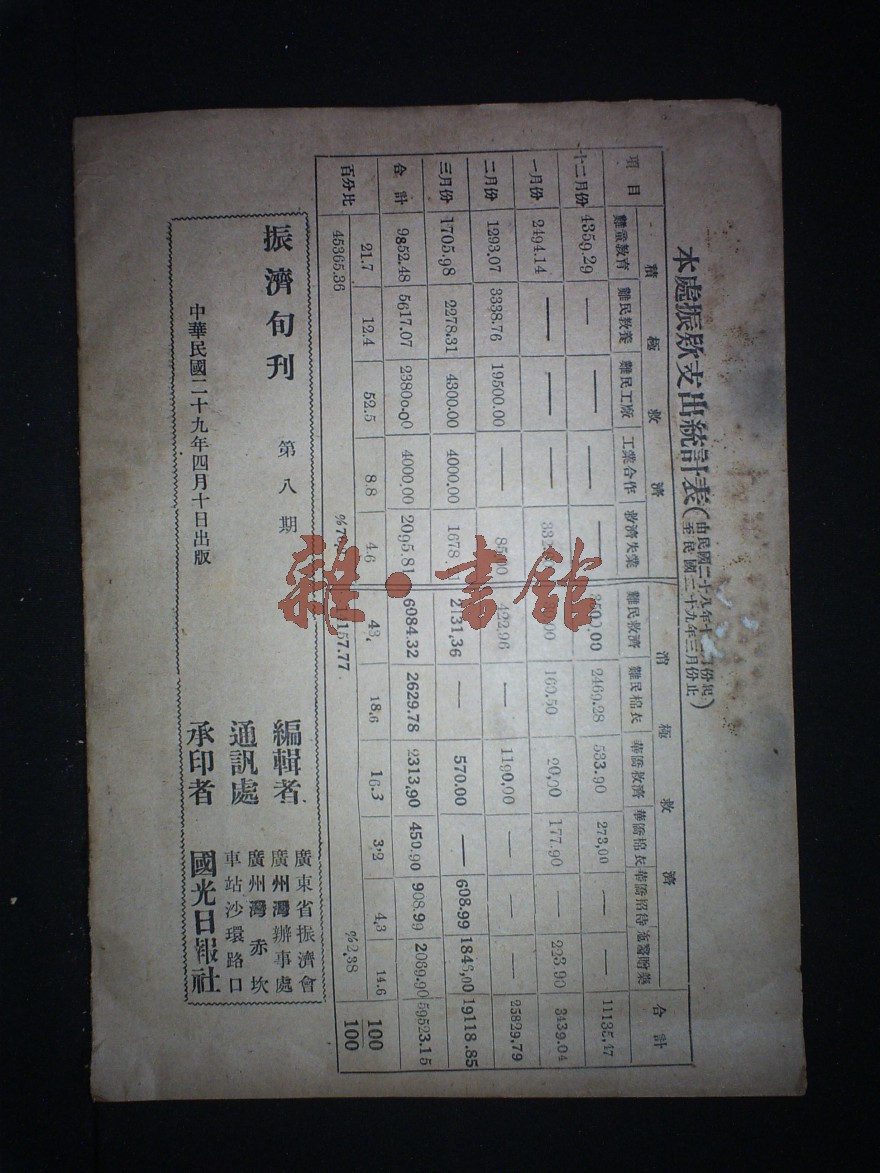 本處振欵支出統計表(由民國二十八年十 月份起至民國二十九年三月份止)
項目 積極救濟 消極救濟 合計
難童教育 難民教養 難民工廠 工業合作 救濟失業 難民救濟 難民棉衣 華僑救濟 華僑棉衣 華僑招待 贈藥
十二月份 4359.29 — — — — 2469.28 533.90 273,00 — — 11135,47
一月份 2494.14 — — — 160.50 20,00 177.90 — 223.90 3439.04
二月份 1293.07 3338.76 19500.00 — 422.96 — 1190,00 — — — 25829.79
三月份 1705.98 2278.31 4300.00 4000,00 1678 2731,36 — 570.00 — 608.99 19118.85
合計 9852.48 5617.07 23800.00 4000.00 2095.81 6084.32 2629.78 2313.90 450.90 908.99 2069.90 59523.15
百分比 21.7 12.4 52.5 8.8 4.6 43, 18,6 16.3 3,2 4,3 14.6 100
45365.36 157.77 %2,38 100
振濟旬刊 第八期
中華民國二十九年四月十日出版
編輯者 廣東省振濟會廣州灣辦事處
通訊處 廣州灣赤坎車站沙環路口
承印者 國光日報社
雜·書館